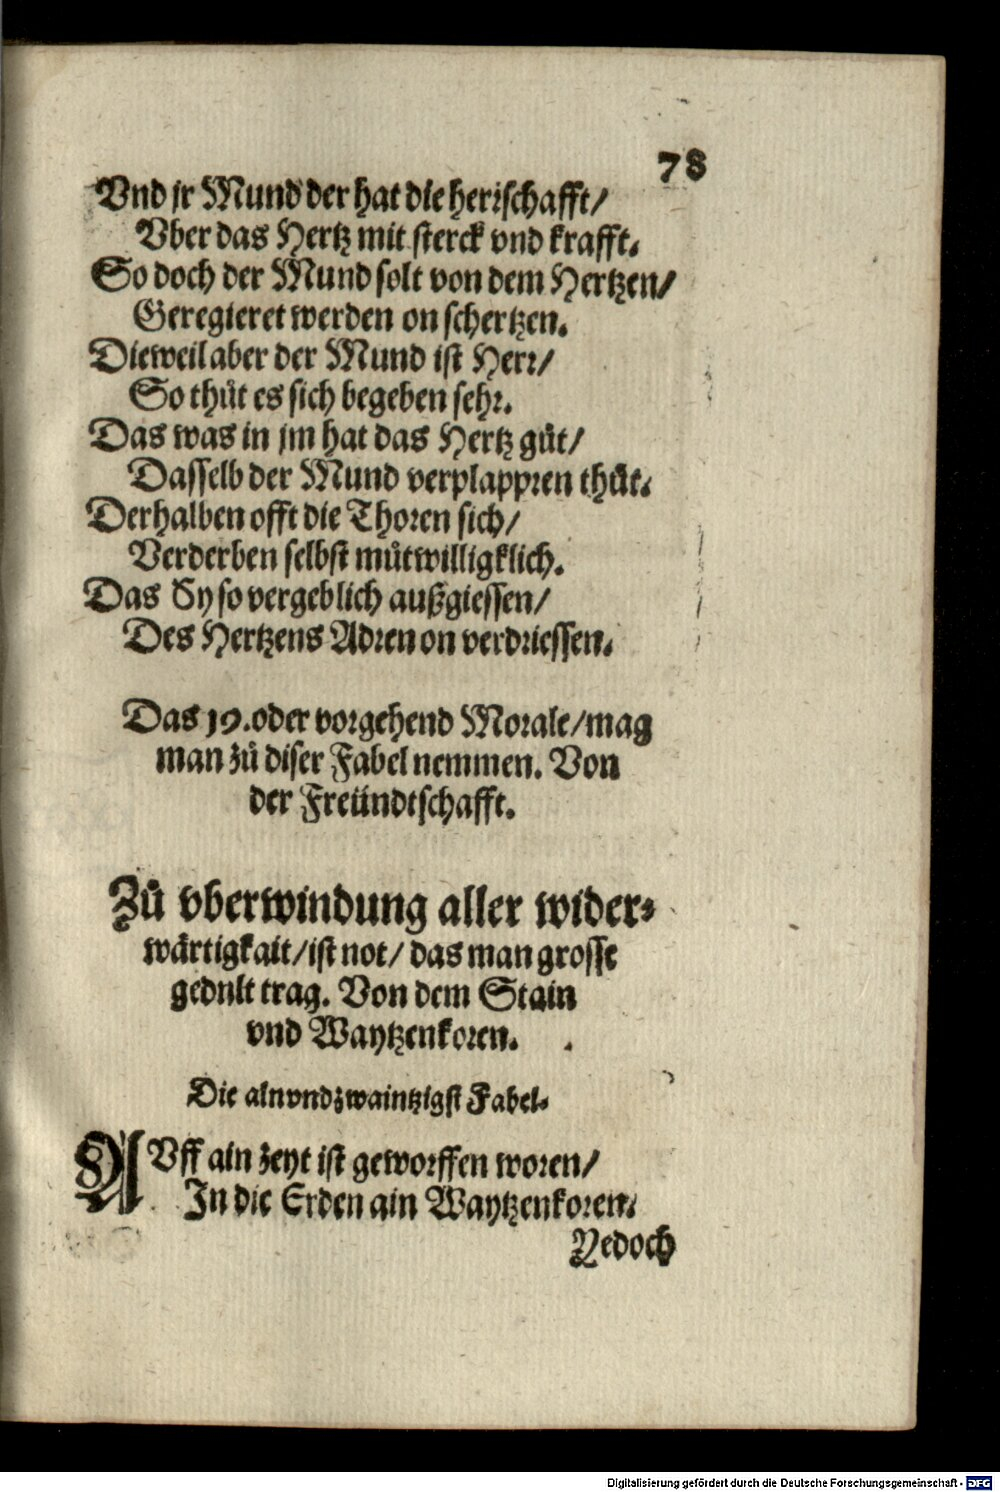 78
Vnd jr Mund der hat die herrschafft/
Vber das Hertz mit sterck vnd krafft.
So doch der Mund solt von dem Hertzen/
Geregieret werden on schertzen.
Dieweil aber der Mund ist Herr/
So thůt es sich begeben sehr.
Das was in jm hat das Hertz gůt/
Dasselb der Mund verplappren thůt.
Derhalben offt die Thoren sich/
Verderben selbst můtwilligklich.
Das Sy so vergeblich außgiessen/
Des Hertzens Adren on verdriessen.
Das 19. oder vorgehend Morale/mag
man zů diser Fabel nemmen. Von
der Freündtschafft.
Zů vberwindung aller wider-
wärtigkait/ist not/ das man grosse
gedult trag. Von dem Stain
vnd Waytzenkoren.
Die ainvndzwaintzigst Fabel.
AVff ain zeyt ist geworffen woren/
In die Erden ain Waytzenkoren.
Yedoch
Digitalisierung gefördert durch die Deutsche Forschungsgemeinschaft - DFG